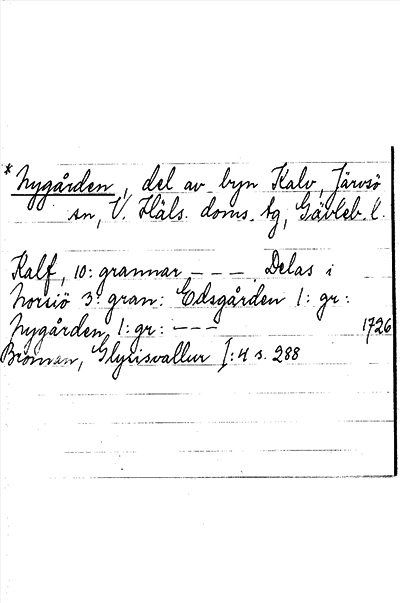 * Nygården, del av byn Kalv, Järvsö
sn, V. Häls. doms. tg, Gävleb. l.
Kalf, 10: grannar - - - Delas i
Norsiö 3: gran: Edsgården 1: gr:
Nygården, 1: gr: - - - 1726
Broman, Glysisvallur I: 4 s. 288